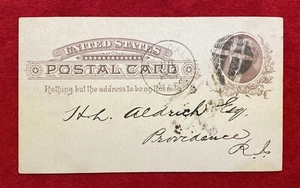 UNITED STATES
POSTAL CARD
Nothing but the address to be on this side
H. L. Aldrich Esq.
Providence
R. I.